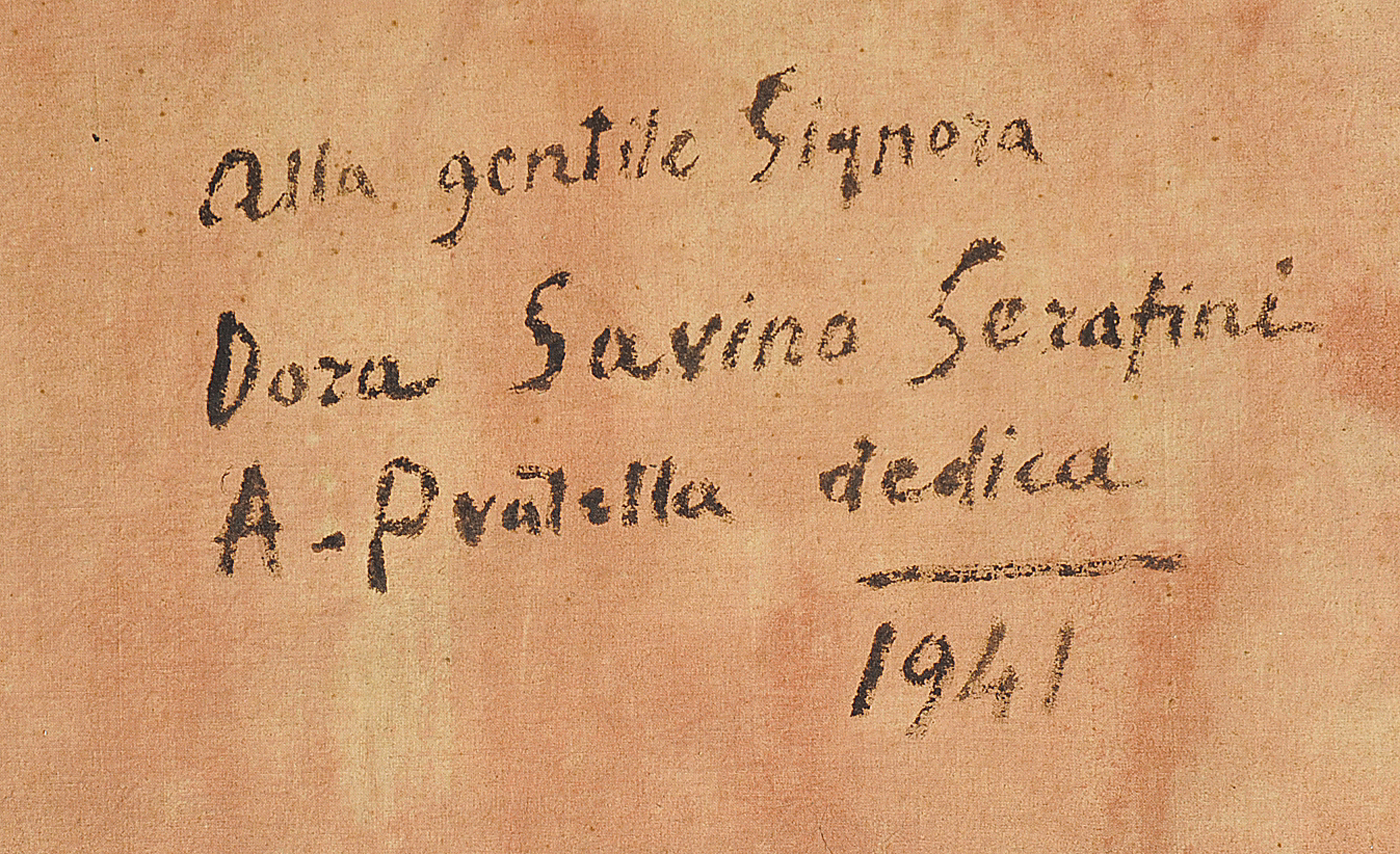 Alla gentile Signora
Dora Savino Serafini
A - Pratella dedica
1941